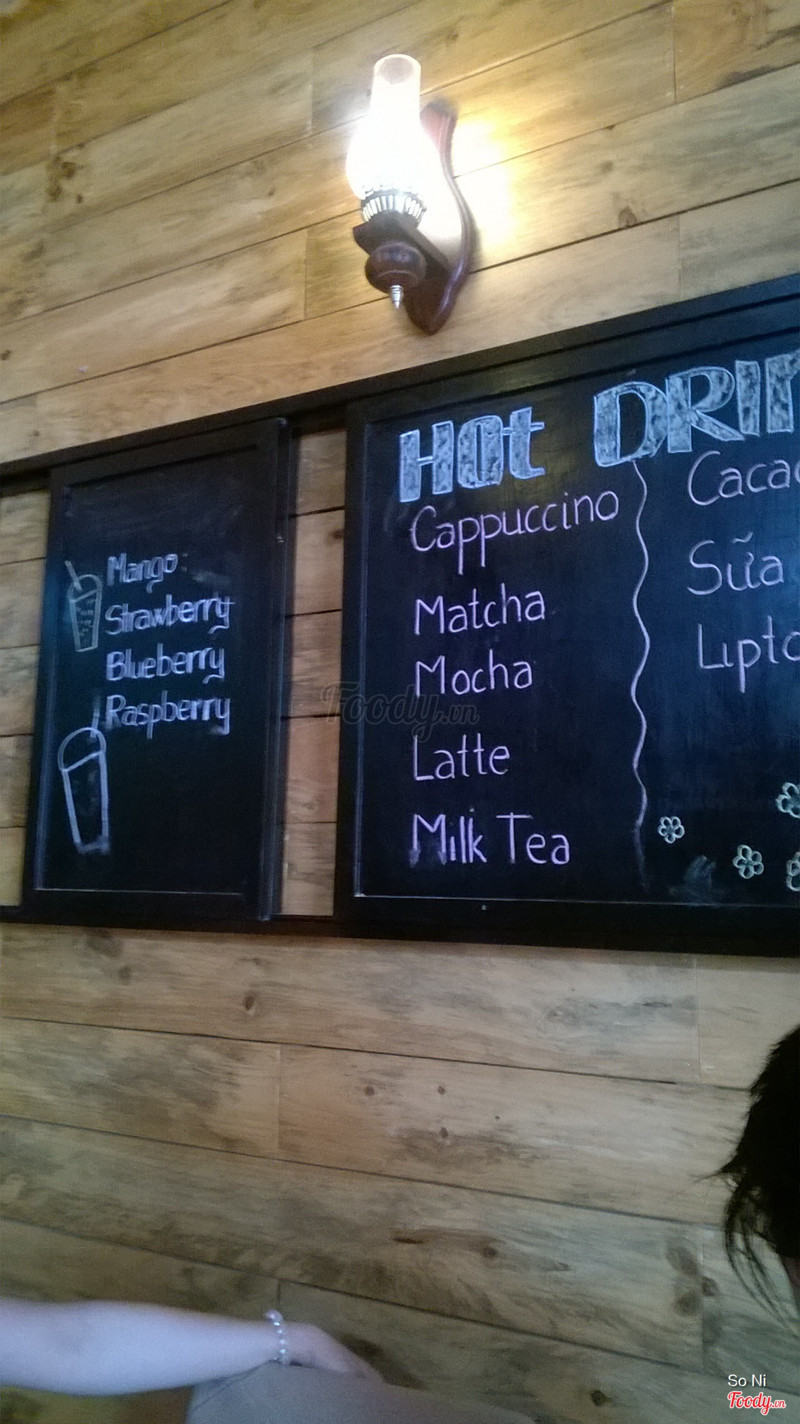 Mango
Strawberry
Blueberry
Raspberry
Hot DRIN
Cappuccino
Matcha
Mocha
Latte
Milk Tea
Cacao
Sữa
Lipto
Foody.vn
So Ni
Foody.vn